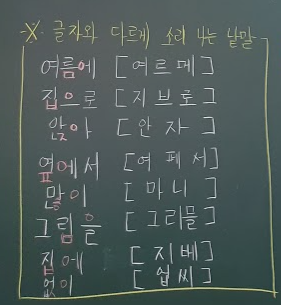 ※ 글자와 다르게 소리 나는 낱말
여름에 [여르메]
집으로 [지브로]
앉아 [안자]
옆에서 [여페서]
많이 [마니]
그림을 [그리믈]
집에 [지베]
없이 [업씨]